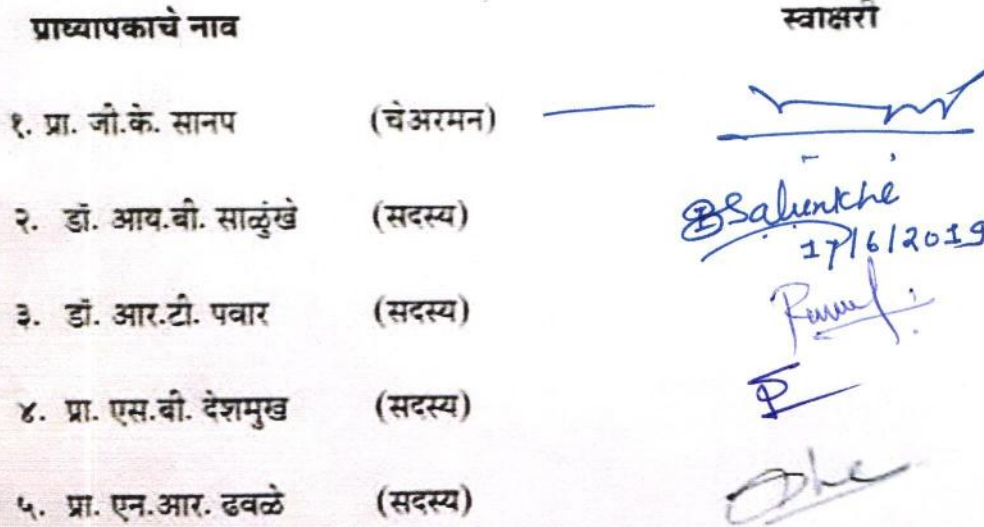 प्राध्यापकाचे नाव स्वाक्षरी
१. प्रा. जी.के. सानप (चेअरमन)
२. डॉ. आय.बी. साळुंखे (सदस्य) Salunkhe
17/6/2019
३. डॉ. आर.टी. पवार (सदस्य)
४. प्रा. एस.बी. देशमुख (सदस्य)
५. प्रा. एन.आर. ढवळे (सदस्य)